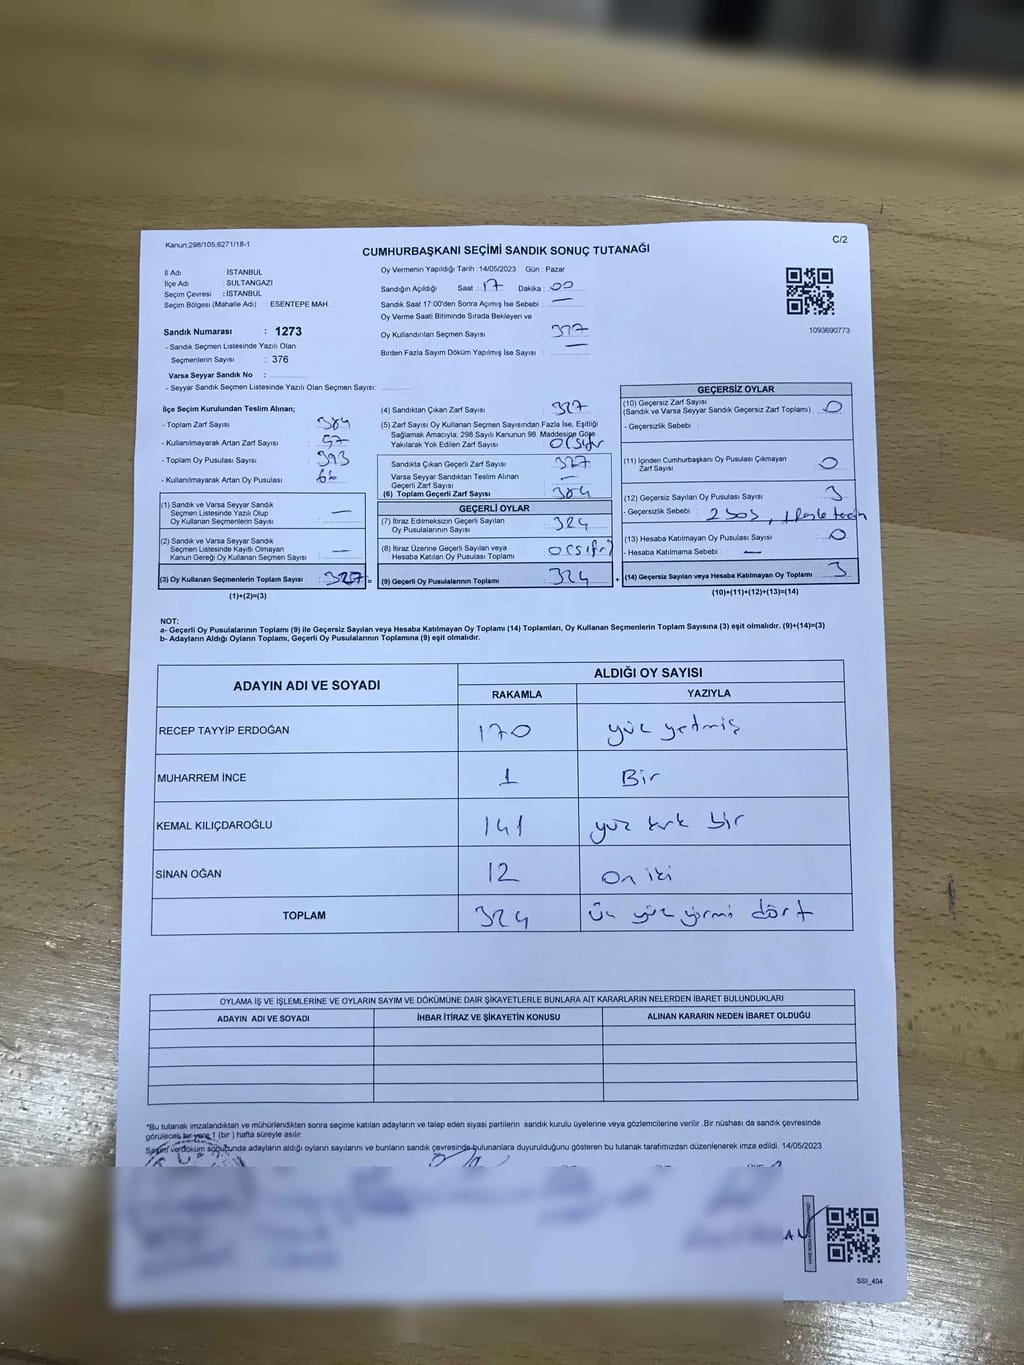 Kanun:298/105,6271/18-1
C/2
CUMHURBAŞKANI SEÇİMİ SANDIK SONUÇ TUTANAĞI
İl Adı : İSTANBUL
İlçe Adı : SULTANGAZİ
Seçim Çevresi : İSTANBUL
Seçim Bölgesi (Mahalle Adı) : ESENTEPE MAH.
Sandık Numarası : 1273
- Sandık Seçmen Listesinde Yazılı Olan
Seçmenlerin Sayısı : 376
Varsa Seyyar Sandık No :
- Seyyar Sandık Seçmen Listesinde Yazılı Olan Seçmen Sayısı:
Oy Vermenin Yapıldığı Tarih : 14/05/2023 Gün : Pazar
Sandığın Açıldığı Saat : 17 Dakika : 00
Sandık Saat 17:00'den Sonra Açımış İse Sebebi : —
Oy Verme Saati Bitiminde Sırada Bekleyen ve
Oy Kullandırılan Seçmen Sayısı : 327
Birden Fazla Sayım Döküm Yapılmış İse Sayısı : —
1093690773
İlçe Seçim Kurulundan Teslim Alınan;
- Toplam Zarf Sayısı : 384
- Kullanılmayarak Artan Zarf Sayısı : 57
- Toplam Oy Pusulası Sayısı : 393
- Kullanılmayarak Artan Oy Pusulası : 66
(1) Sandık ve Varsa Seyyar Sandık
Seçmen Listesinde Yazılı Olup
Oy Kullanan Seçmenlerin Sayısı : —
(2) Sandık ve Varsa Seyyar Sandık
Seçmen Listesinde Kayıtlı Olmayan
Kanun Gereği Oy Kullanan Seçmen Sayısı : —
(3) Oy Kullanan Seçmenlerin Toplam Sayısı : 327 =
(1)+(2)=(3)
(4) Sandıktan Çıkan Zarf Sayısı : 327
(5) Zarf Sayısı Oy Kullanan Seçmen Sayısından Fazla İse, Eşitliği
Sağlamak Amacıyla; 298 Sayılı Kanunun 98. Maddesine Göre
Yakılarak Yok Edilen Zarf Sayısı : 0(sıfır)
Sandıkta Çıkan Geçerli Zarf Sayısı : 327
Varsa Seyyar Sandıktan Teslim Alınan
Geçerli Zarf Sayısı : —
(6) Toplam Geçerli Zarf Sayısı : 384
GEÇERLİ OYLAR
(7) İtiraz Edilmeksizin Geçerli Sayılan
Oy Pusulalarının Sayısı : 324
(8) İtiraz Üzerine Geçerli Sayılan veya
Hesaba Katılan Oy Pusulası Toplamı : 0(sıfır)
(9) Geçerli Oy Pusulalarının Toplamı : 324 +
GEÇERSİZ OYLAR
(10) Geçersiz Zarf Sayısı
(Sandık ve Varsa Seyyar Sandık Geçersiz Zarf Toplamı) : 0
- Geçersizlik Sebebi :
(11) İçinden Cumhurbaşkanı Oy Pusulası Çıkmayan
Zarf Sayısı : 0
(12) Geçersiz Sayılan Oy Pusulası Sayısı : 3
- Geçersizlik Sebebi : 2 boş,
(13) Hesaba Katılmayan Oy Pusulası Sayısı : 0
- Hesaba Katılmama Sebebi : —
(14) Geçersiz Sayılan veya Hesaba Katılmayan Oy Toplamı : 3
(10)+(11)+(12)+(13)=(14)
NOT:
a- Geçerli Oy Pusulalarının Toplamı (9) ile Geçersiz Sayılan veya Hesaba Katılmayan Oy Toplamı (14) Toplamları, Oy Kullanan Seçmenlerin Toplam Sayısına (3) eşit olmalıdır. (9)+(14)=(3)
b- Adayların Aldığı Oyların Toplamı, Geçerli Oy Pusulalarının Toplamına (9) eşit olmalıdır.
ADAYIN ADI VE SOYADI
ALDIĞI OY SAYISI
RAKAMLA YAZIYLA
RECEP TAYYİP ERDOĞAN 170 yüz yetmiş
MUHARREM İNCE 1 Bir
KEMAL KILIÇDAROĞLU 141 yüz kırk bir
SİNAN OĞAN 12 on iki
TOPLAM 324 Üç yüz yirmi dört
OYLAMA İŞ VE İŞLEMLERİNE VE OYLARIN SAYIM VE DÖKÜMÜNE DAİR ŞİKAYETLERLE BUNLARA AİT KARARLARIN NELERDEN İBARET BULUNDUKLARI
ADAYIN ADI VE SOYADI İHBAR İTİRAZ VE ŞİKAYETİN KONUSU ALINAN KARARIN NEDEN İBARET OLDUĞU
"Bu tutanak imzalandıktan ve mühürlendikten sonra seçime katılan adayların ve talep eden siyasi partilerin sandık kurulu üyelerine veya gözlemcilerine verilir .Bir nüshası da sandık çevresinde
görülecek bir yere 1 (bir ) hafta süreyle asılır.
Sayım ve döküm sonucunda adayların aldığı oyların sayılarını ve bunların sandık çevresinde bulunanlara duyurulduğunu gösteren bu tutanak tarafımızdan düzenlenerek imza edildi. 14/05/2023
SSI_404